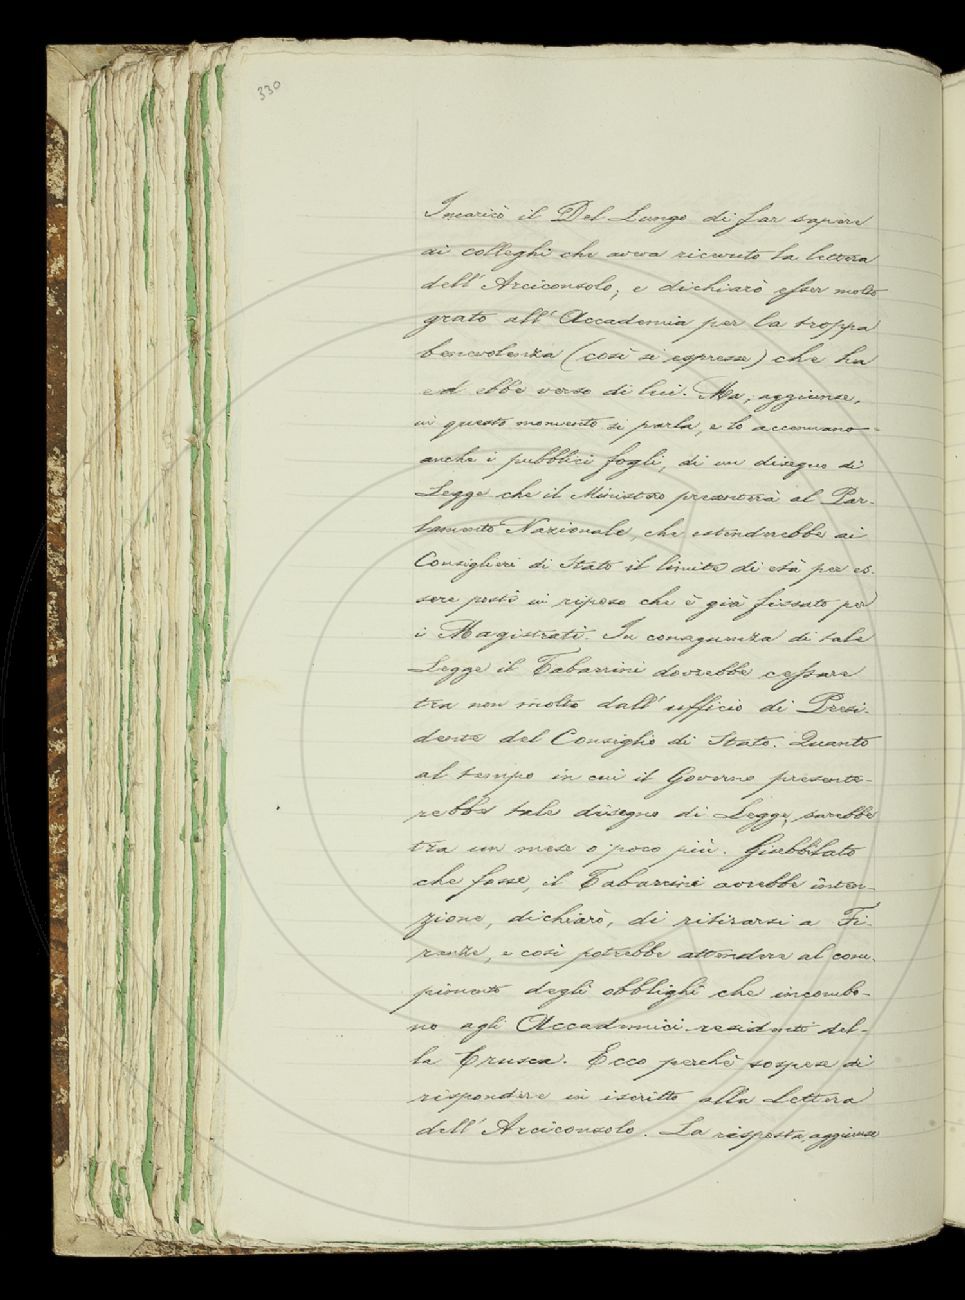 330
Incaricò il Del Lungo di far sapere
ai colleghi che aveva ricevuto la lettera
dell'Arciconsolo; e dichiarò esser molto
grato all'Accademia per la troppa
benevolenza (così si espresse) che ha
ed ebbe verso di lui. Ma, aggiunse,
in questo momento si parla, e lo accennano
anche i pubblici fogli, di un disegno di
Legge che il Ministero presenterà al Par-
lamento Nazionale, che estenderebbe ai
Consiglieri di Stato il limite di età per es-
sere posti in riposo che è già fissato per
i Magistrati. In conseguenza di tale
Legge il Tabarrini dovrebbe cessare
tra non molto dall'ufficio di Presi-
dente del Consiglio di Stato. Quanto
al tempo in cui il Governo presente-
rebbe tale disegno di Legge, sarebbe
tra un mese o poco più. Giubbilato
che fosse, il Tabarrini avrebbe inten-
zione, dichiarò, di ritirarsi a Fi-
renze, e così potrebbe attendere al com-
pimento degli obblighi che incombo-
no agli Accademici residenti del-
la Crusca. Ecco perchè sospese di
rispondere in iscritto alla Lettera
dell'Arciconsolo. La risposta, aggiunse